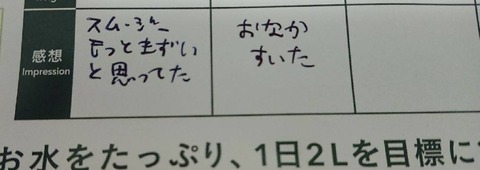 感想
Impression
スムージー
もっとまずい
と思ってた
おなか
すいた
お水をたっぷり、1日2Lを目標に